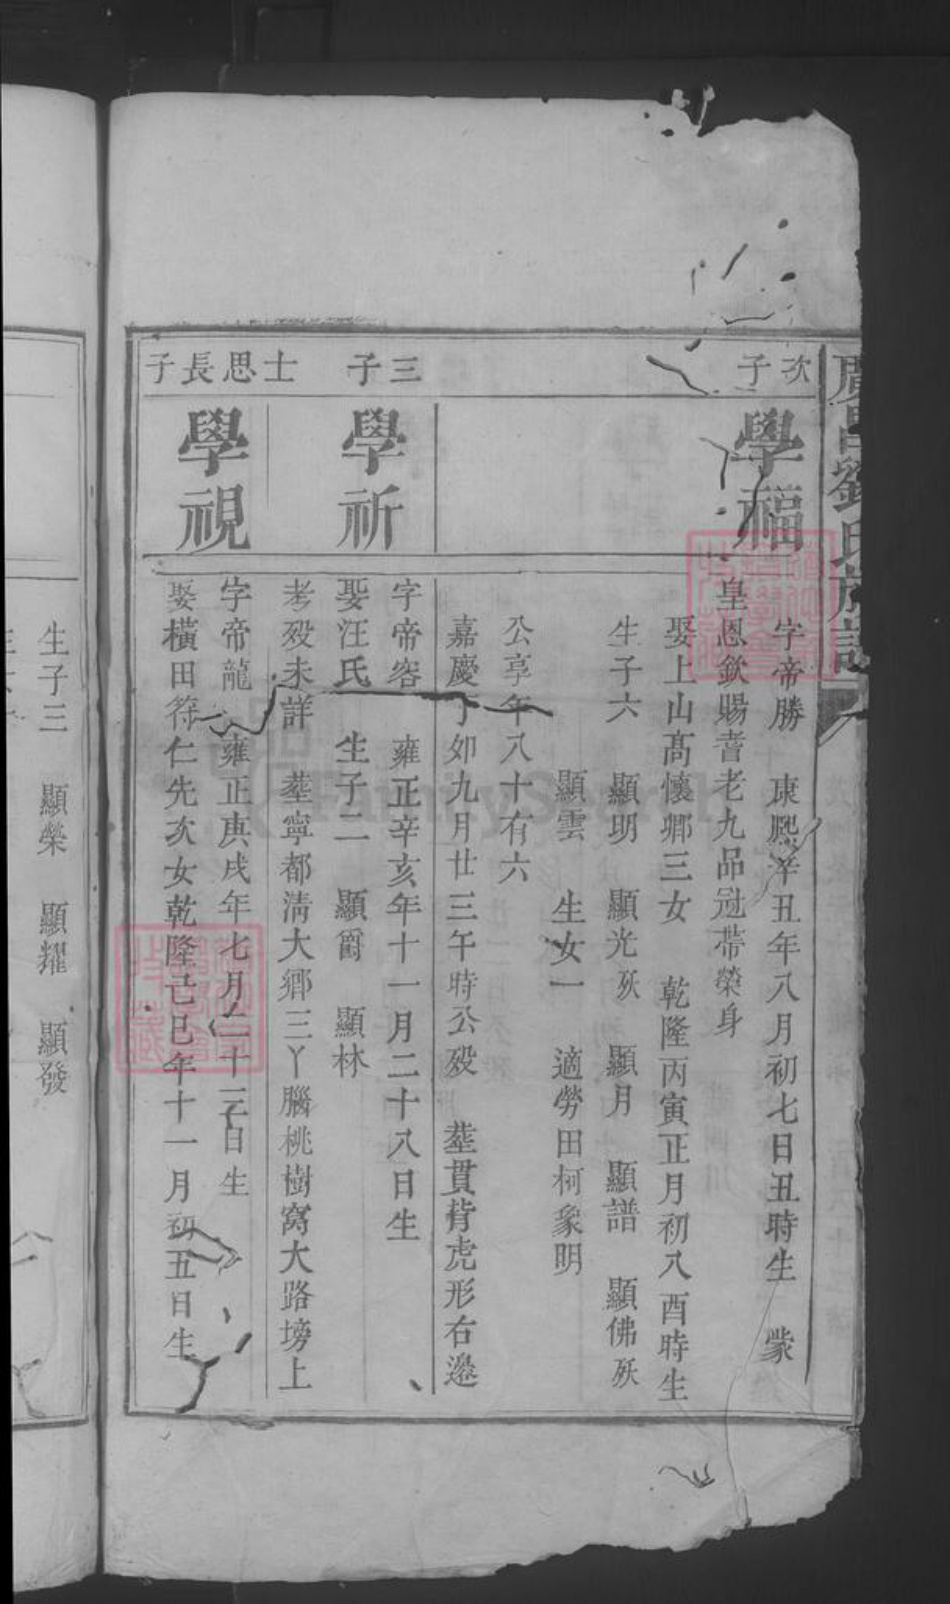 廣昌劉氏族譜
次子
學福
字帝勝 康熙辛丑年八月初七日丑時生 蒙
皇恩欽賜耆老九品冠帶榮身
娶上山高懷鄉三女 乾隆丙寅正月初八酉時生
生子六 顯明 顯光殀 顯月 顯譜 顯佛殀
顯雲 生女一 適勞田柯象明
公享年八十有六
嘉慶丁卯九月廿三午時公歿 塟貫背虎形右邉
三子
學祈
字帝容 雍正辛亥年十一月二十八日生
娶汪氏 生子二 顯爵 顯林
考歿未詳 塟寧都清大鄉三丫腦桃樹窩大路塝上
士思長子
學視
字帝龍 雍正庚戌年七月二十三日生
娶橫田符仁先次女乾隆己巳年十一月初五日生
生子三 顯榮 顯耀 顯發